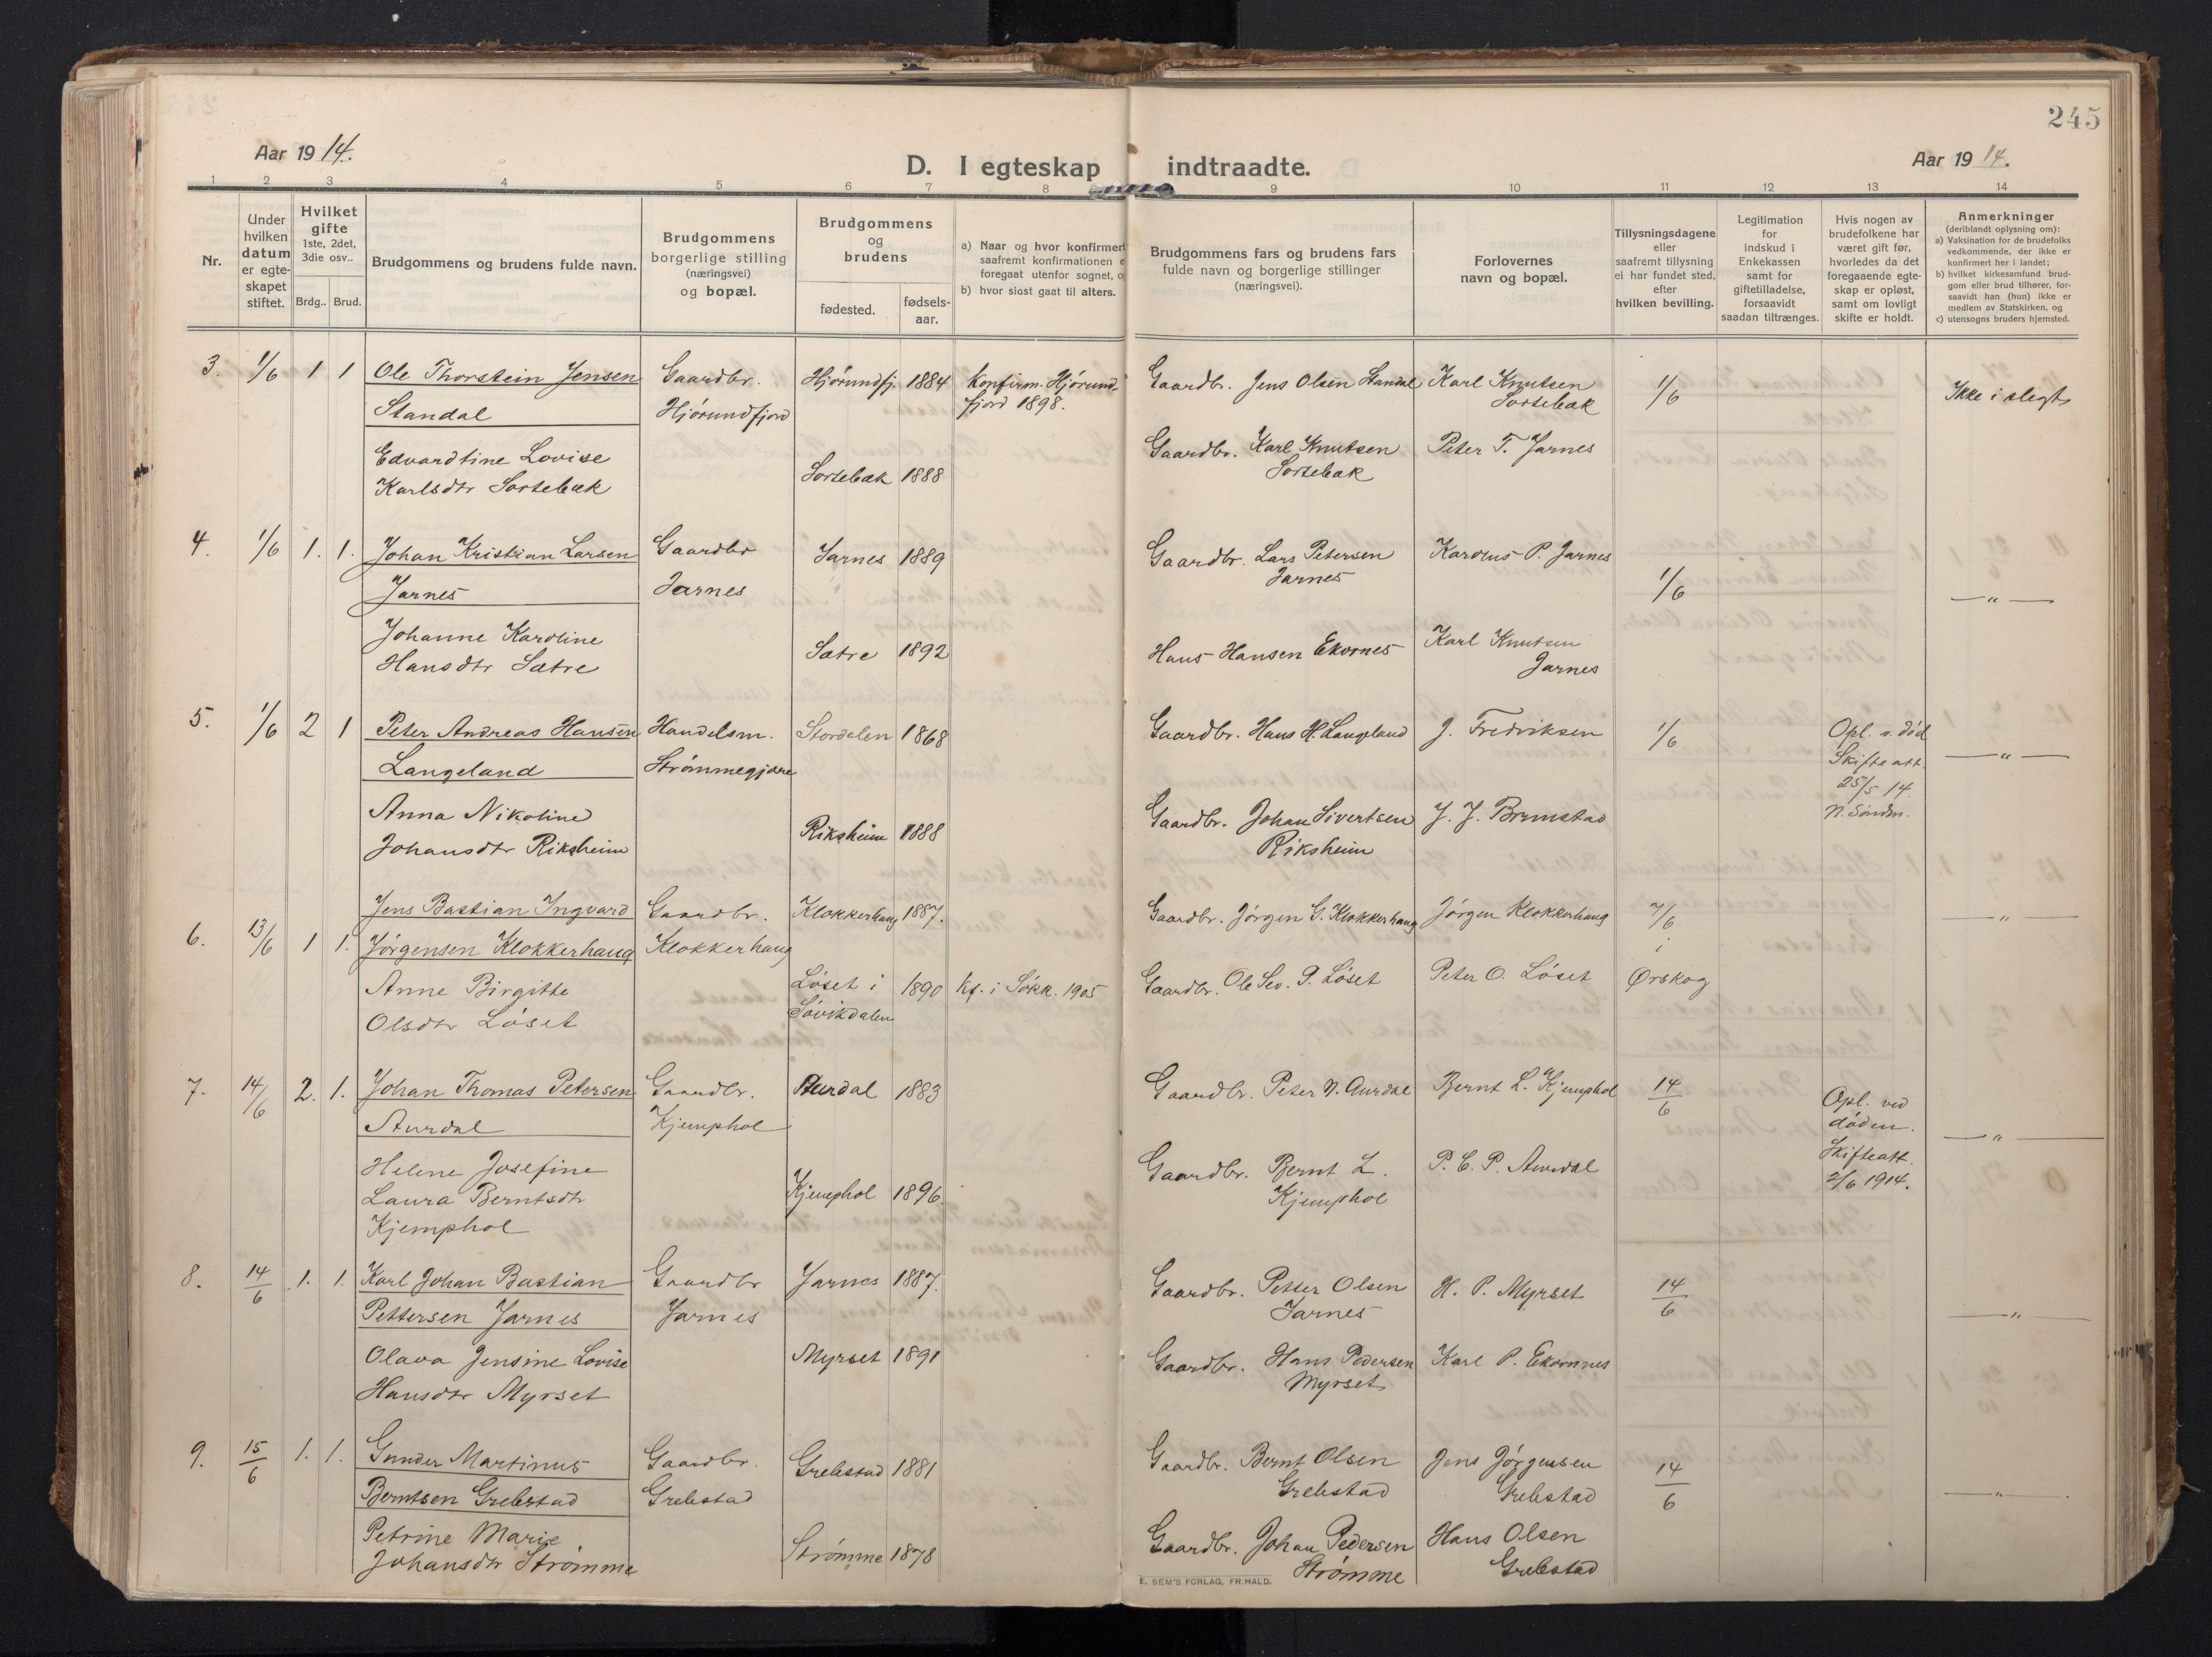 245
Aar 1914.
D. I egteskap indtraadte.
Aar 1914.
1 2 3 4 5 6 7 8 9 10 11 12 13 14
Nr.
Under hvilken datum er egte-skapet stiftet.
Hvilket gifte
1ste, 2det, 3die osv..
Brdg.. Brud.
Brudgommens og brudens fulde navn.
Brudgommens
borgerlige stilling
(næringsvei)
og bopæl.
Brudgommens
og
brudens
fødested.
fødsels-
aar.
a) Naar og hvor konfirmert
saafremt konfirmationen
foregaat utenfor sognet, o
b) hvor sidst gaat til alters.
Brudgommens fars og brudens fars
fulde navn og borgerlige stillinger
(næringsvei).
Forlovernes
navn og bopæl.
Tillysningsdagene
eller
saafremt tillysning
ei har fundet sted,
efter
hvilken bevilling.
Legitimation
for
indskud i
Enkekassen
samt for
giftetilladelse,
forsaavidt
saadan tiltrænges.
Hvis nogen av
brudefolkene har
været gift før,
hvorledes da det
foregaaende egte-
skap er opløst,
samt om lovligt
skifte er holdt.
Anmerkninger
(deriblandt oplysning om):
a) Vaksination for de brudefolks
vedkommende, der ikke er
konfirmert her i landet;
b) hvilket kirkesamfund brud-
gom eller brud tilhører, for-
saavidt han (hun) ikke er
medlem av Statskirken, og
c) utensogns bruders hjemsted.
3. 1/6 1 1 Ole Thorstein Jensen Gaardbr. Hjørundfj. 1884 Konfirm. Hjørund- Gaardbr. Jens Olsen Standal Karl Knutsen 1/6 Ikke i slegt
Standal Hjørundfjord fjord 1898. Sortebak
Edvardtine Lovise Gaardbr. Karl Knutsen Peter T. Jarnes
Karlsdtr Sortebak Sortebak 1888 Sortebak
4. 1/6 1. 1. Johan Kristian Larsen Gaardbr Jarnes 1889 Gaardbr. Lars Petersen Karolus P. Jarnes
Jarnes Jarnes Jarnes 1/6 — " —
Johanne Karoline Karl Knutsen
Hansdtr Sætre Sætre 1892 Hans Hansen Ekornes Jarnes
5. 1/6 2 1 Peter Andreas Hansen Handelsm. Stordalen 1868 Gaardbr. Hans H. Langeland J. Fredriksen 1/6 Opl. v. død
Langeland Strømmegjære Skifteatt. — " —
25/5 14.
Anna Nikoline Gaardbr. Johan Sivertsen J. J. Brunstad N. Søndm.
Johansdtr Riksheim Riksheim 1888 Riksheim
6. 13/6 1 1. Jens Bastian Ingvard Gaardbr. Klokkerhaug 1887. Gaardbr. Jørgen G. Klokkerhaug Jørgen Klokkerhaug 7/6 — " —
Jørgensen Klokkerhaug Klokkerhaug i
Anne Birgitte Løset i 1890 Kf. i Søkk. 1905 Gaardbr. Ole Sev. P. Løset Peter O. Løset Ørskog
Olsdtr Løset Søvikdalen
7. 14/6 2. 1. Johan Thomas Petersen Gaardbr. Aurdal 1883 Gaardbr. Peter N. Aurdal Bernt L. Kjemphol 14/6 Opl. ved
Aurdal Kjemphol døden. — " —
Helene Josefine Gaardbr. Bernt L. P. C. P. Aurdal Skifteatt.
Laura Berntsdtr Kjemphol 1896. Kjemphol 2/6 1914.
Kjemphol
8. 14/6 1. 1. Karl Johan Bastian Gaardbr Jarnes 1887. Gaardbr. Petter Olsen H. P. Myrset 14/6
Pettersen Jarnes Jarnes Jarnes — " —
Olava Jensine Lovise Myrset 1891 Gaardbr. Hans Pedersen Karl P. Ekornnes
Hansdtr Myrset Myrset
9. 15/6 1. 1. Gunder Martinus Gaardbr. Grebstad 1881 Gaardbr. Bernt Olsen Jens Jørgensen 14/6
Berntsen Grebstad Grebstad Grebstad Grebstad — " —
Petrine Marie Gaardbr. Johan Pedersen Hans Olsen
Johansdtr Strømme Strømme 1878 Strømme Grebstad
E. SEM'S FORLAG, FR.HALD.